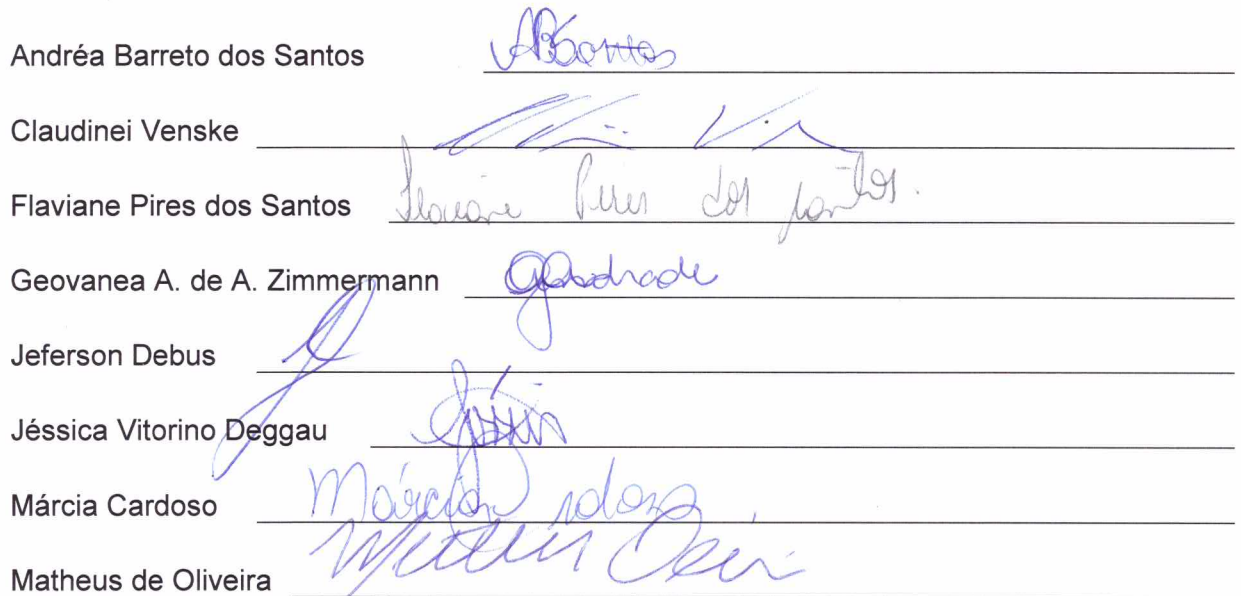 Andréa Barreto dos Santos ABSantos
Claudinei Venske
Flaviane Pires dos Santos Flaviane Pires dos Santos.
Geovanea A. de A. Zimmermann GAndrade
Jeferson Debus
Jéssica Vitorino Deggau
Márcia Cardoso Márcia
Matheus de Oliveira